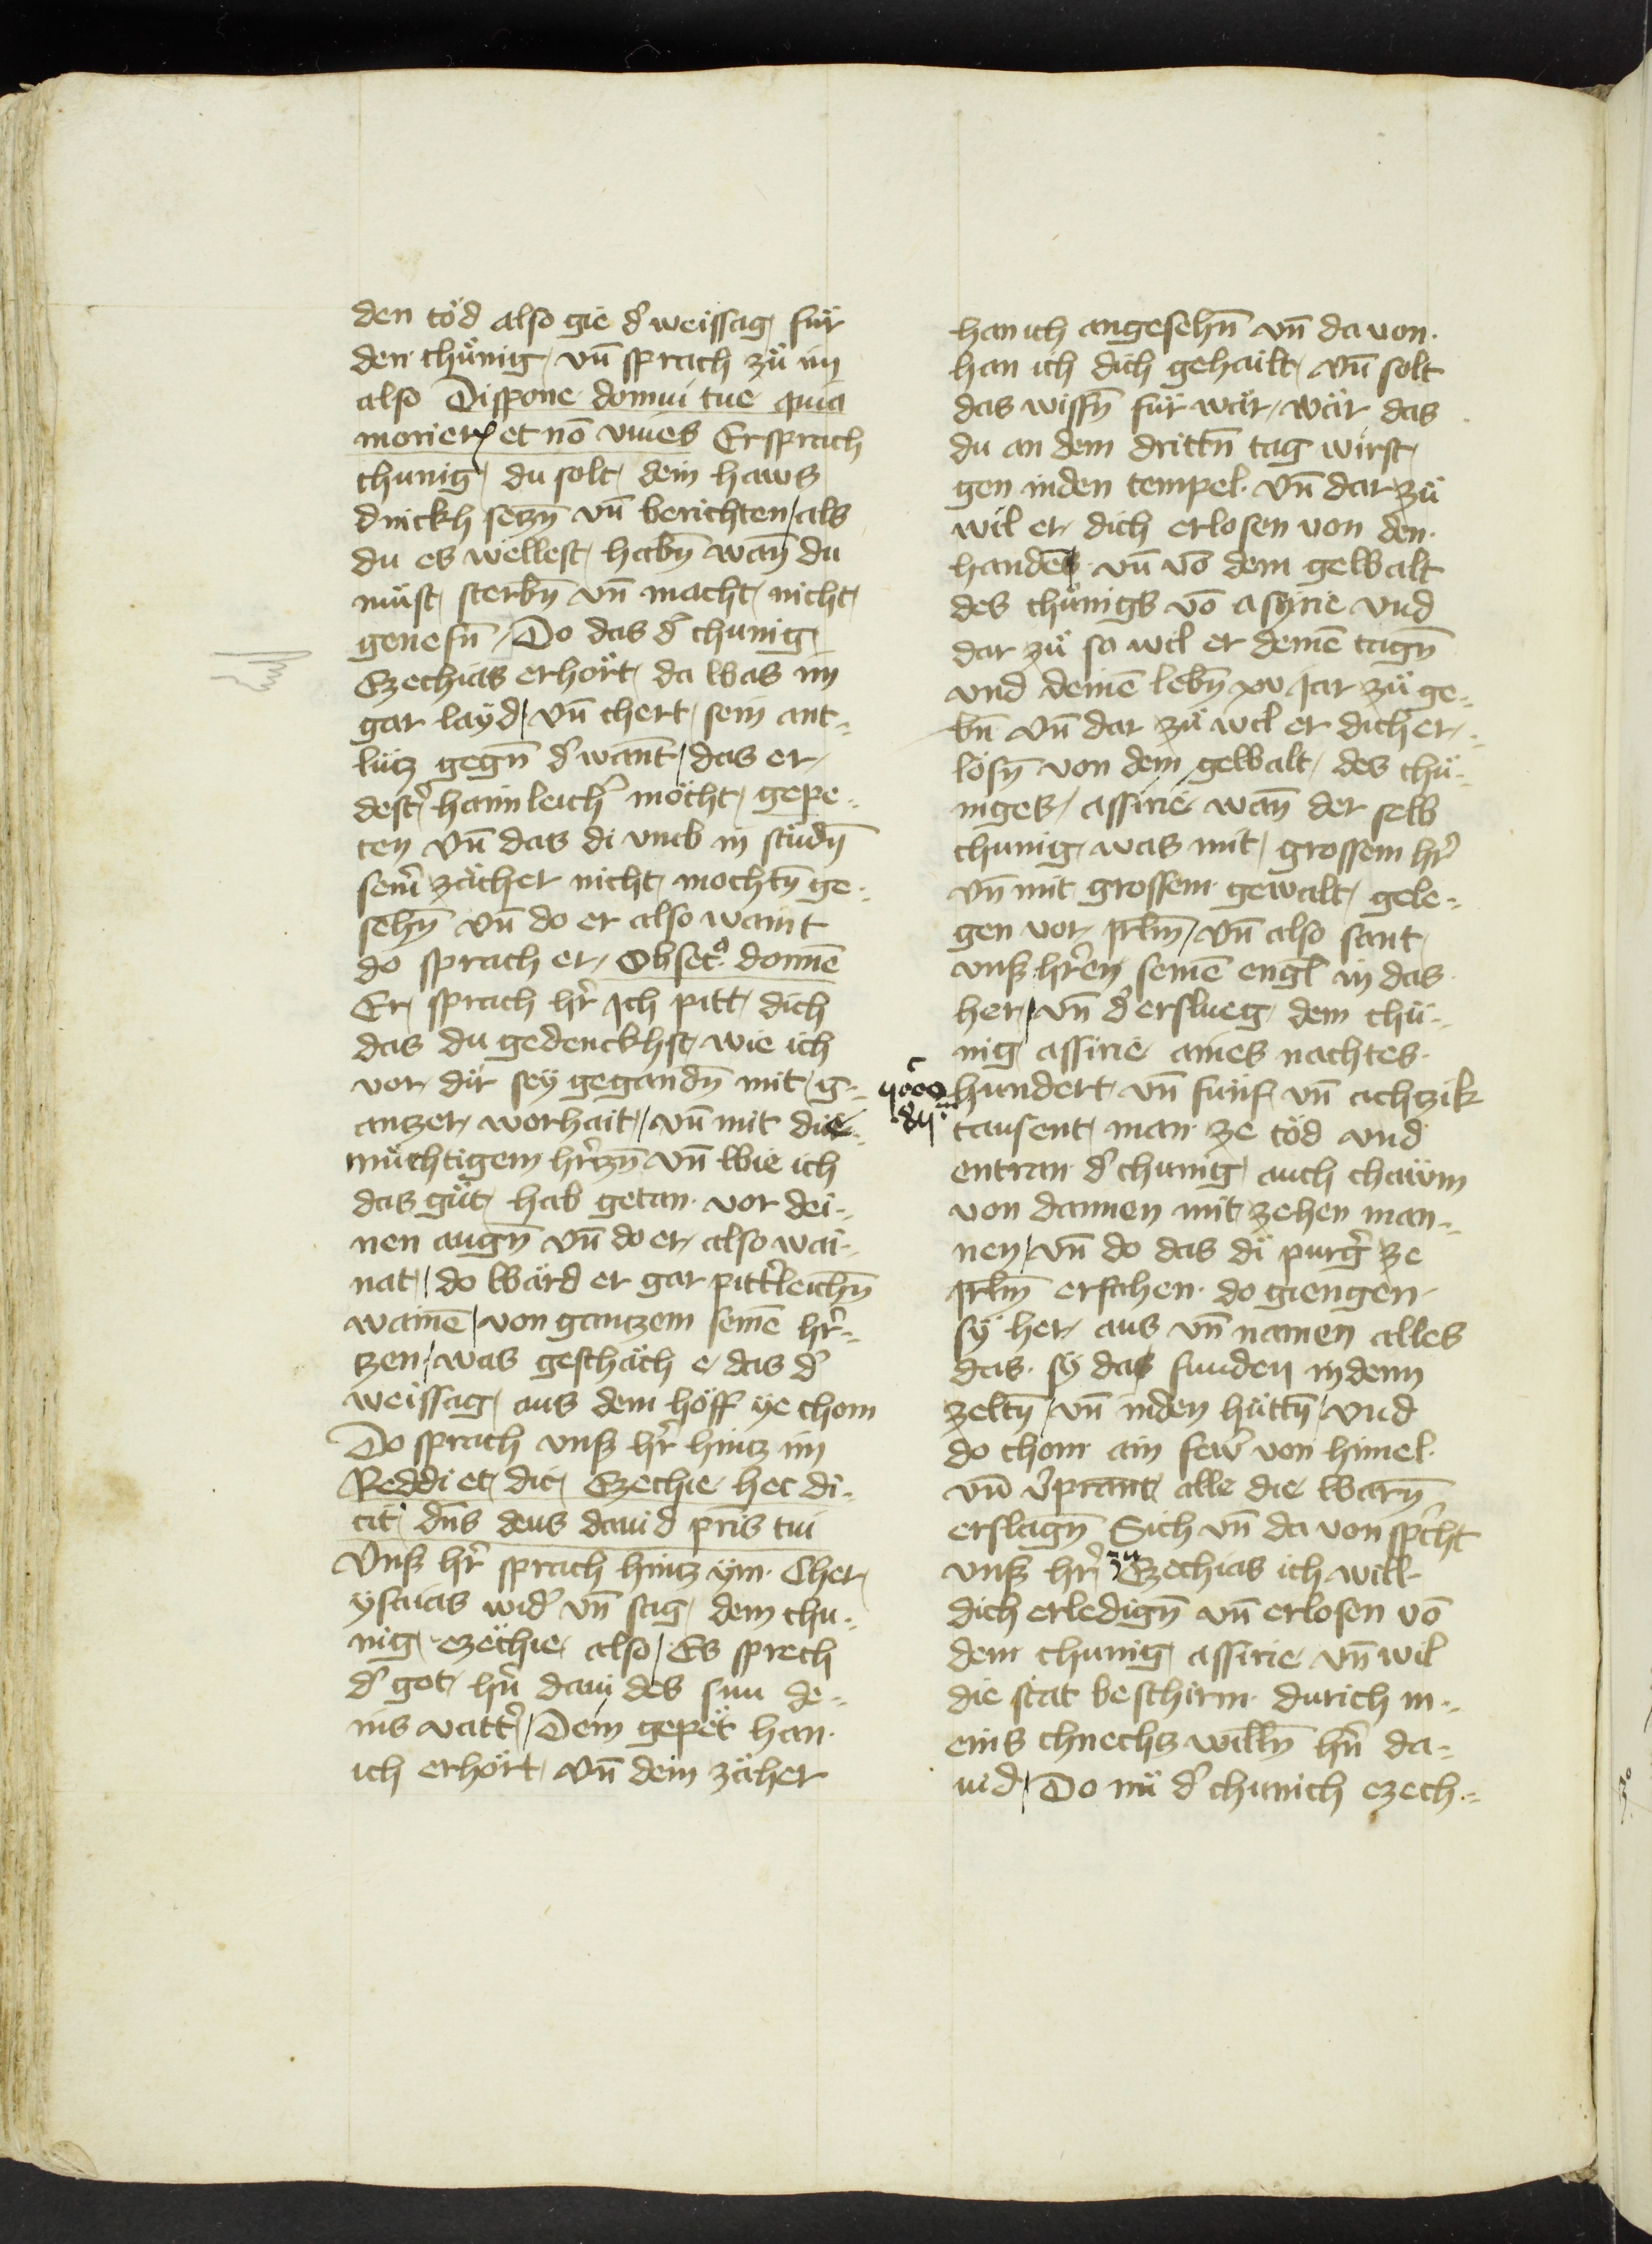 den töd also gie dˀ weissag für
den chünig vn̄ sprach zü im
also Dispone domui tue quia
morierꝭ et nō viues Er sprach
chunig du solt dein haws
dnickh seczn̄ vn̄ berichten / als
du es wellest habn̄ wan̄ du
müst sterbn̄ vn̄ macht nicht
genesn̄ / Do das dˀ chunig
Ezechias erhört da was im
gar layd / vn̄ chert sein ant-
lücz gegn̄ dˀ want / das er
destˀ haimleichˀ möcht gepe-
ten vn̄ das di vmb in stüdn̄
seinˀ zächer nicht mochtn̄ ge-
sehn̄ vn̄ do er also waint
do sprach er / Obsecͦ domine
Er sprach hˀr Ich pitt dich
das du gedenckhst wie ich
vor dir sey gegandn̄ mit g-
antzer worhait / vn̄ mit die
müchtigem hˀrczn̄ vn̄ wie ich
das güt hab getan vor dei-
nen augn̄ vn̄ do er also wai-
nat / do wärd er gar pittˀleichn̄
wainē / von gantzem seinē hˀr-
tzen / was geschäch e das dˀ
weissag aus dem höff ye chom
Do sprach vnß hˀr hintz im
Reddi et dic Ezechie hec di-
cit dn̄s deus dauid pr̄is tui
Vnß hˀr sprach hintz ym Cher
ysaias widˀ vn̄ sag dem chu-
nig ezechie also / Es sprech
dˀ got hˀn dauides sun de-
nis vattˀ / Dein gepet han
ich erhört vn̄ dein zäher
han ich angesehn̄ vn̄ da von
han ich dich gehailt vn̄ solt
das wissn̄ für wär / wär das
du an dem drittn̄ tag wirst
gen inden tempel vn̄ dar zü
wil er dich erlosen von den
handē vn̄ vō dem gewalt
des chünigs vō asyrie vnd
dar zü so wil er deinē tagn̄
vnd deinē lebn̄ xv jar zü ge-
bn̄ vn̄ dar zü wil er dich er-
lösn̄ von dem gewalt des chü-
niges / assirie wan̄ der selb
chunig was mit grossem hˀr
vn̄ mit grossem gewalt gele-
gen vor jrl̄m / vn̄ also sant
vnß hˀren seinē engl in das
her / vn̄ dˀ erslueg dem chü-
nig assirie aines nachtes
hundert vn̄ fünf vn̄ achzik
tausent man ze töd vnd
entran dˀ chunig auch chawm
von dannen mit zehen man-
nen / vn̄ do das di purgˀ ze
jrl̄m ersahen do giengen
sy her aus vn̄ namen alles
das sy das funden in denn
zeltn̄ / vn̄ inden hüttn̄ / vnd
do chom ain fewˀ von himel
vn̄ vˀprant alle die warn̄
erslagn̄ Sich vn̄ da von spˀcht
vnß hˀr zu Ezechias ich will
dich erledign̄ vn̄ erlosen vō
dem chunig assirie vn̄ wil
die stat beschirm durich m-
eins chnechs willn̄ hˀn da-
uid / Do nü dˀ chunich ezech-